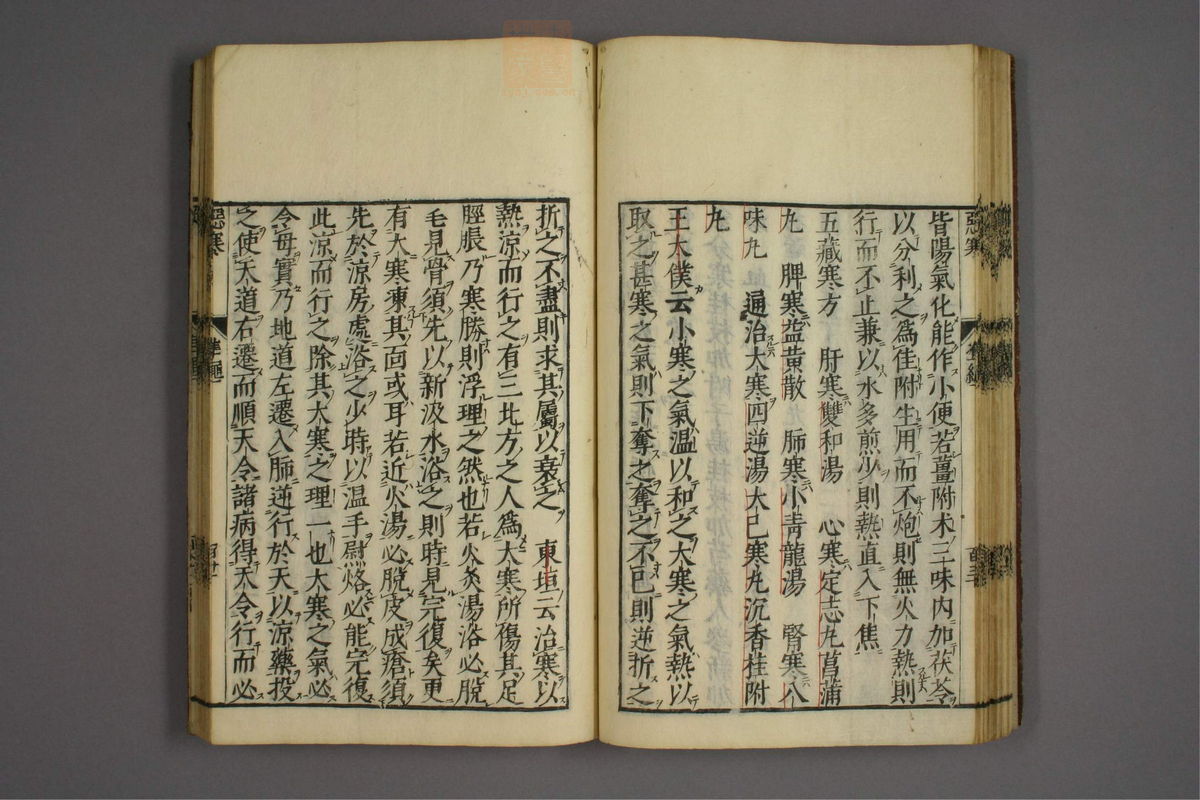 皆陽氣化能作小便若薑附术三味内加茯苓
以分利之爲佳附生用而不炮則無火力熱則
行而不止兼以水多煎少則熱直入下焦
五藏寒方　肝寒雙和湯　心寒定志丸菖蒲
丸　脾寒益黄散　肺寒小青龍湯　腎寒八
味丸　通治大寒四逆湯大已寒丸沉香桂附
丸
王太僕云小寒之氣温以和之大寒之氣熱以
取之甚寒之氣則下奪之奪之不已則逆折之
折之不盡則求其屬以衰之　東垣云治寒以
熱凉而行之有三北方之人爲大寒所傷其足
脛脹乃寒勝則浮理之然也若火灸湯浴必脱
毛見骨須先以新汲水浴之則時見完復矣更
有大寒凍其面或耳若近火湯必脱皮成瘡須
先於凉房處浴之少時以温手熨烙必能完復
此凉而行之除其大寒之理一也大寒之氣必
令母實乃地道左遷入肺逆行於天以凉藥投
之使天道右遷而順天令諸病得天令行而必
惡寒
惡寒